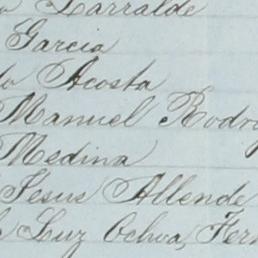 Larralde
Garcia
Acosta
Manuel Rodri
Medina
Jesus Allende
Luz Ochoa, Fern